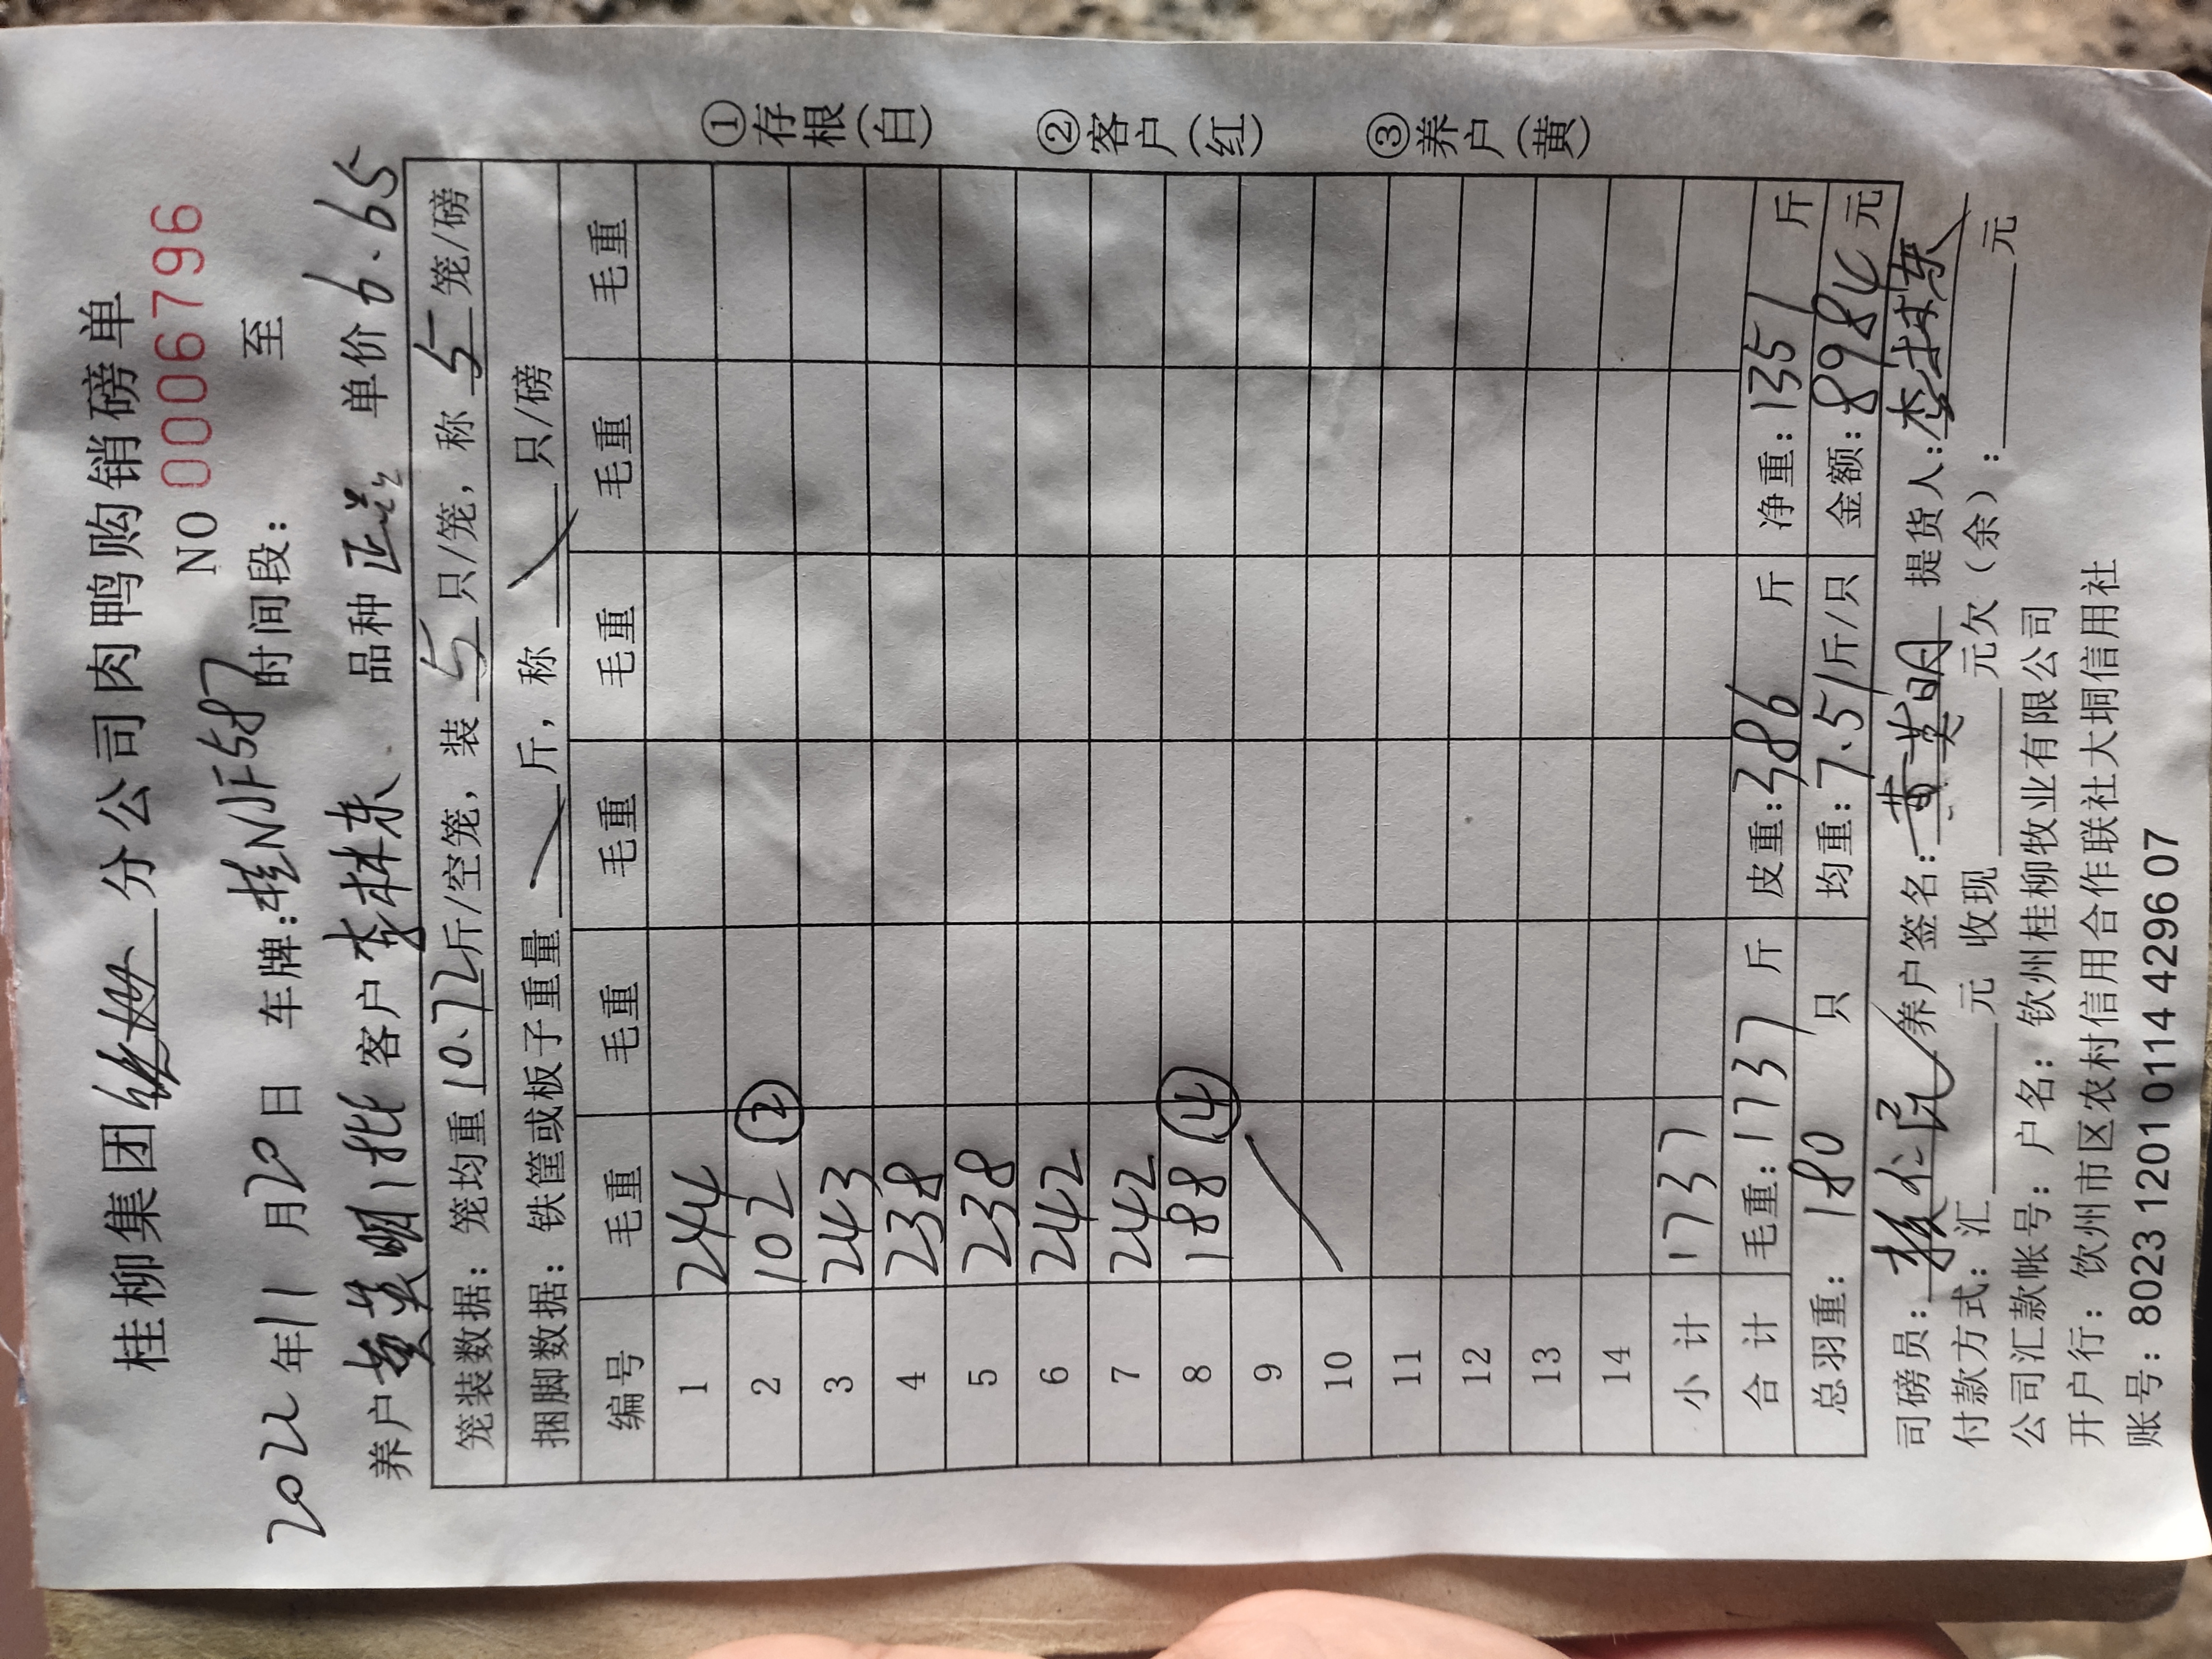 桂柳集团 分公司肉鸭购销磅单
NO 0006796
2022年11月20日 车牌:桂NJF587 时间段: 至
养户黄英明1批 客户李林东 品种正芯 单价6.65
笼装数据:笼均重10.72斤/空笼,装5只/笼,称5笼/磅
捆脚数据:铁筐或板子重量 斤,称 只/磅
编号 毛重 毛重 毛重 毛重 毛重 毛重
1 244
2 102 ②
3 243
4 238
5 238
6 242
7 242
8 188 ④
9
10
11
12
13
14
小计 1737
合计 毛重:1737斤 皮重:386斤 净重:1351斤
总羽重:180只 均重:7.51斤/只 金额:8984元
司磅员: 养户签名:黄英明 提货人:李林东
付款方式:汇 元 收现 元欠(余): 元
公司汇款帐号:户名:钦州桂柳牧业有限公司
开户行:钦州市区农村信用合作联社大垌信用社
账号:8023 1201 0114 4296 07
①存根(白)
②客户(红)
③养户(黄)